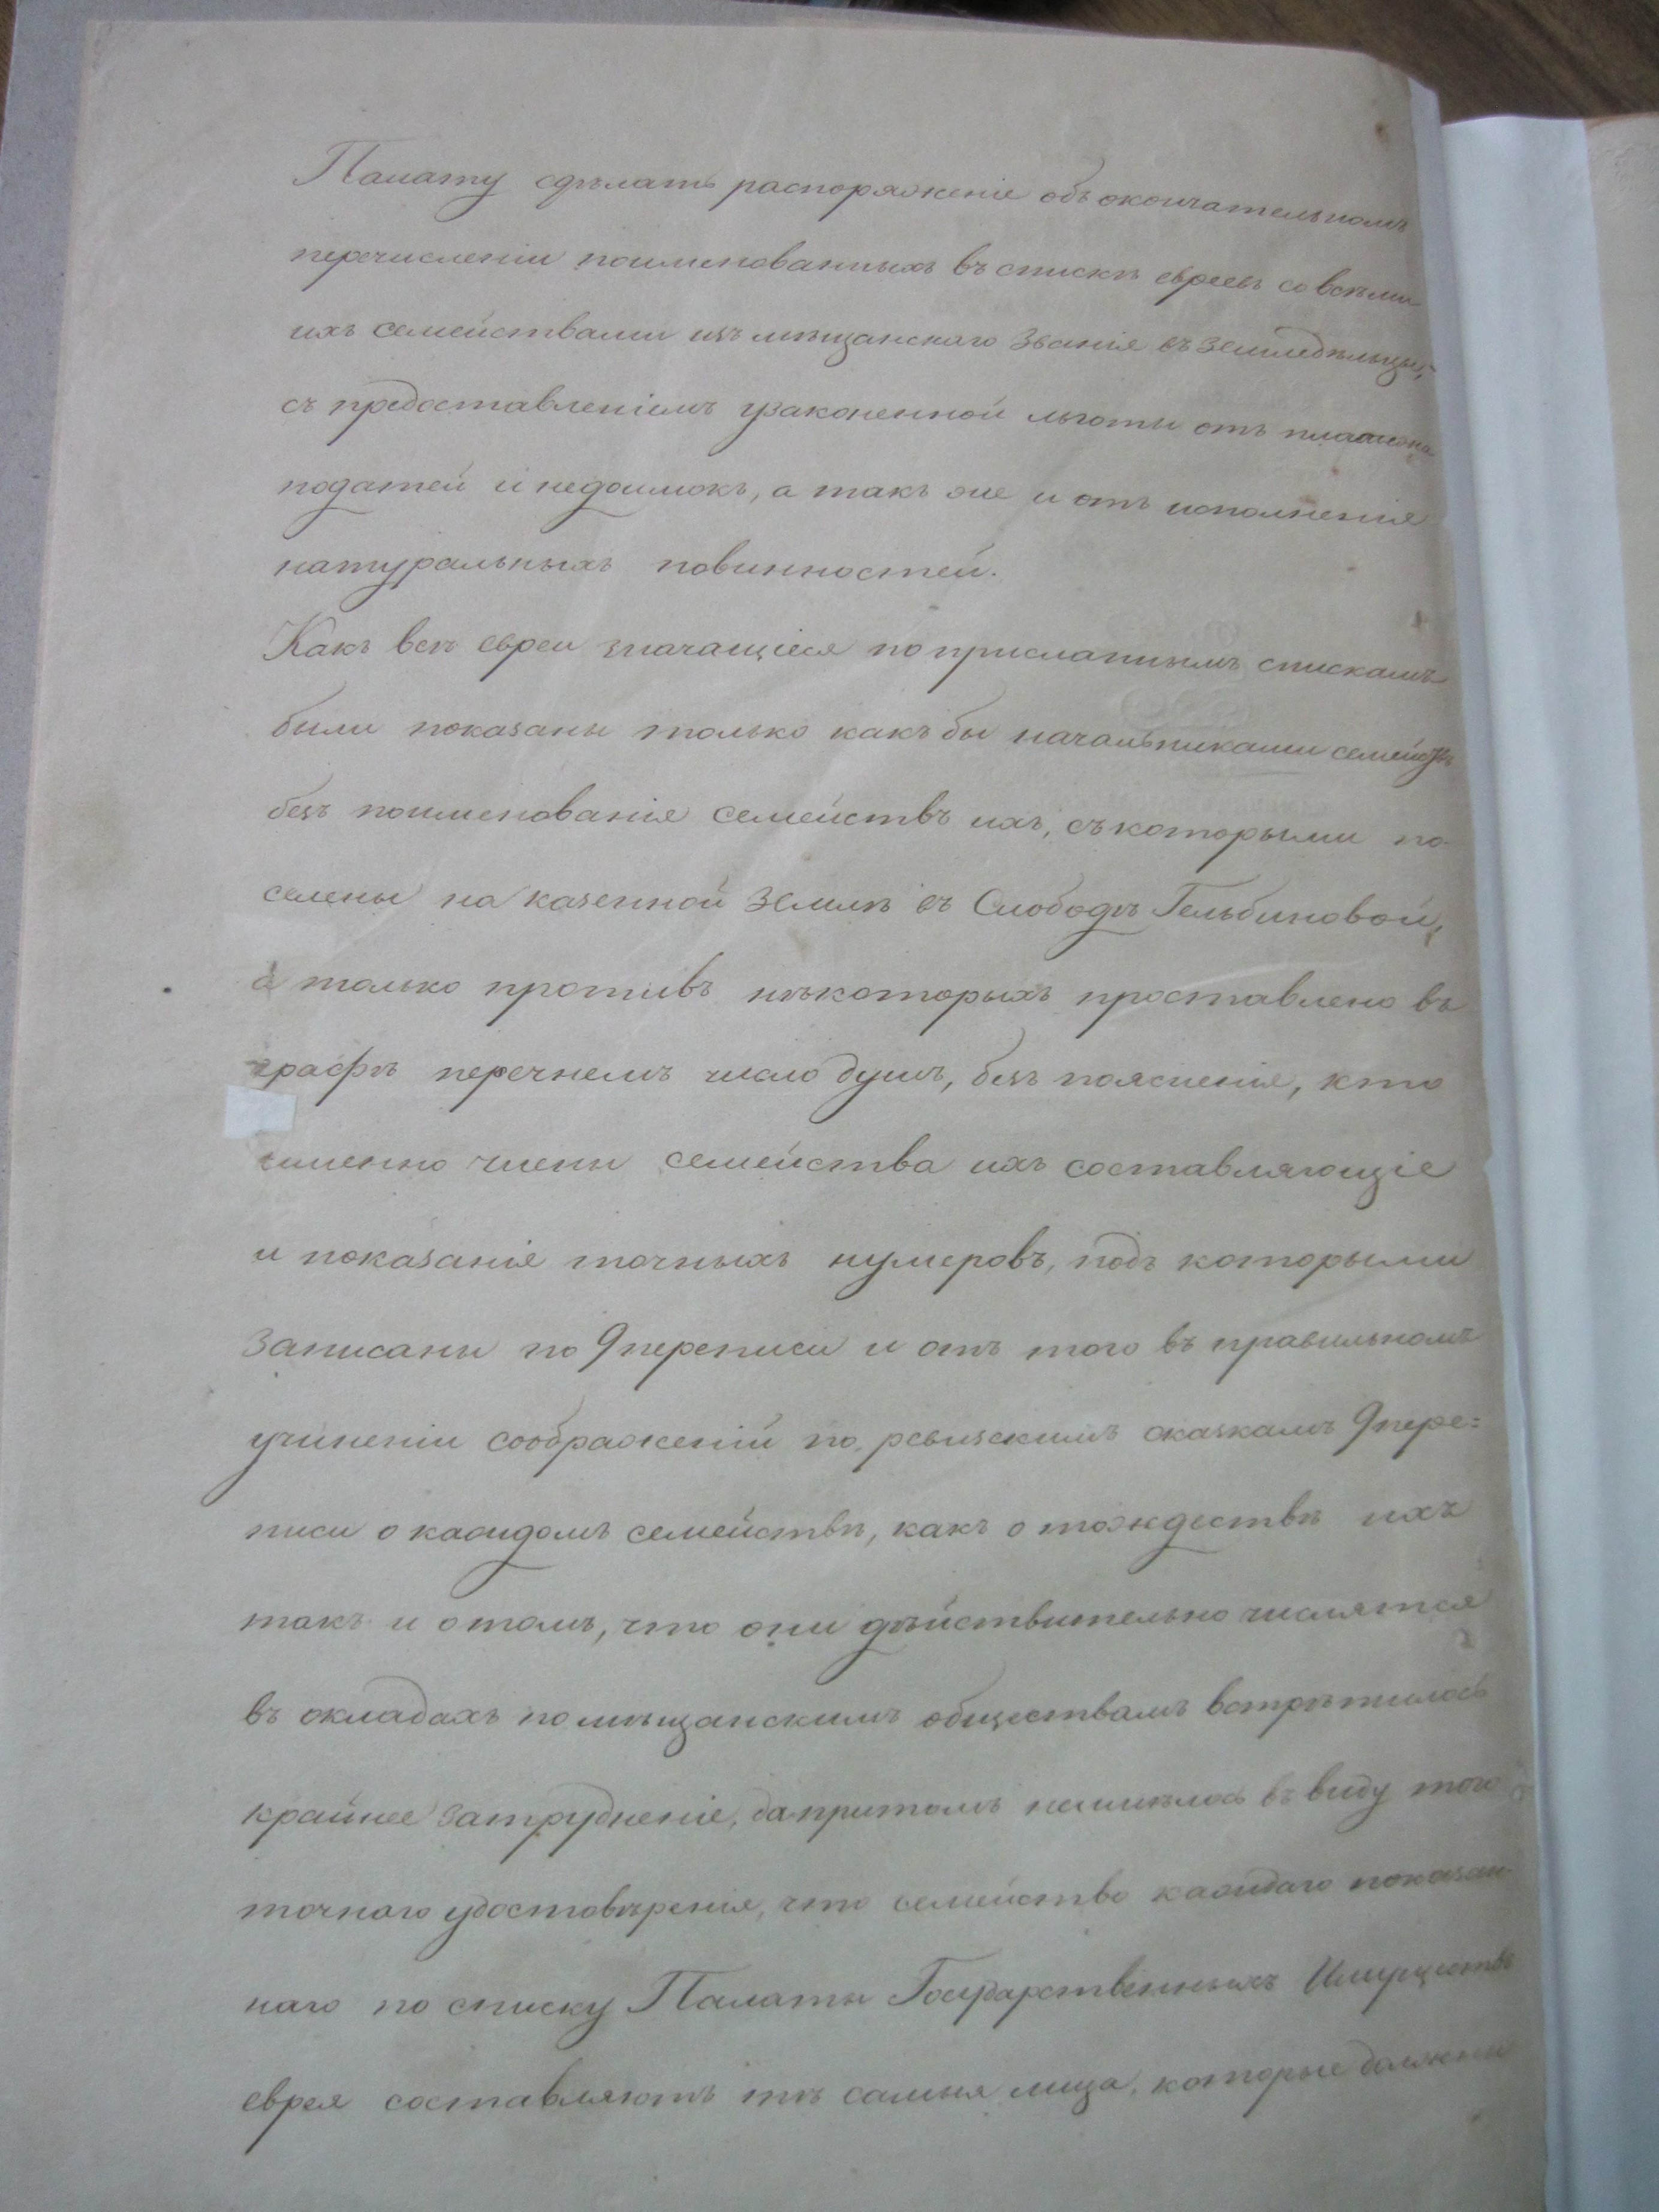 Палату сдѣлать распоряженіе объ окончательномъ
перечисленіи поименованныхъ въ спискѣ евреевъ со всѣми
ихъ семействами изъ мѣщанскаго званія въ земледѣльцы,
съ предоставленіемъ узаконенной льготы отъ платежа
податей и недоимокъ, а такъ же и отъ исполненія
натуральныхъ повинностей.
Какъ всѣ евреи значащіеся по присланнымъ спискамъ
были показаны только какъ бы начальниками семействъ
безъ поименованія семействъ ихъ, съ которыми по-
селены на казенной землѣ въ Слободѣ Гельбиновой,
а только противъ нѣкоторыхъ проставлено въ
графѣ перечнемъ число душъ, безъ поясненія, кто
именно члены семейства ихъ составляющіе
и показанія точныхъ нумеровъ, подъ которыми
записаны по 9 переписи и отъ того въ правильномъ
учиненіи соображеній по ревизскимъ сказкамъ 9 пере=
писи о каждомъ семействѣ, какъ о тождествѣ ихъ
такъ и о томъ, что они дѣйствительно числятся
въ окладахъ по мѣщанскимъ обществамъ встрѣтилось
крайнее затрудненіе, да притомъ неимѣлось въ виду того
точнаго удостовѣренія, что семейство каждаго показан-
наго по списку Палаты Государственныхъ Имуществъ
еврея составляютъ тѣ самыя лица, которые должны